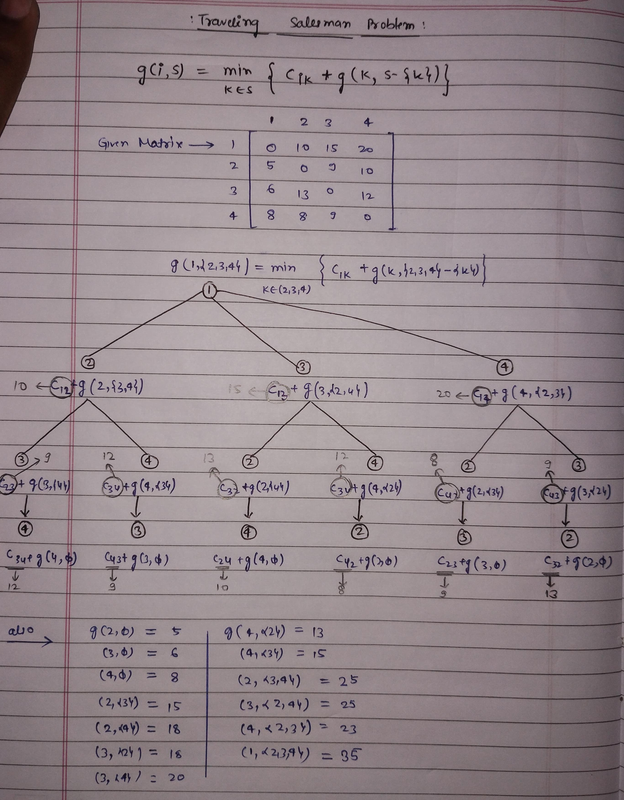 : Traveling Salesman Problem :
g(i,s) = min { Cik + g(k, s-{k})}
k∈s
1 2 3 4
Given Matrix → 1 0 10 15 20
2 5 0 9 10
3 6 13 0 12
4 8 8 9 0
g(1,{2,3,4}) = min { C1k + g(k,{2,3,4}-{k})}
k∈(2,3,4)
1
2 3 4
10 ← C12+g(2,{3,4}) 15 ← C12+ g(3,{2,4}) 20 ← C14+g(4,{2,3})
3 9 12 4 13 2 12 4 8 2 9 3
C23+g(3,{4}) C34+g(4,{3}) C32+g(2,{4}) C34+g(4,{2}) C42+g(2,{3}) C43+g(3,{2})
4 3 4 2 3 2
C34+g(4,φ) C43+g(3,φ) C24+g(4,φ) C42+g(2,φ) C23+g(3,φ) C32+g(2,φ)
12 9 10 8 9 13
also → g(2,φ) = 5 g(4,{2}) = 13
(3,φ) = 6 (4,{3}) = 15
(4,φ) = 8 (2,{3,4}) = 25
(2,{3}) = 15 (3,{2,4}) = 25
(2,{4}) = 18 (4,{2,3}) = 23
(3,{2}) = 18 (1,{2,3,4}) = 35
(3,{4}) = 20